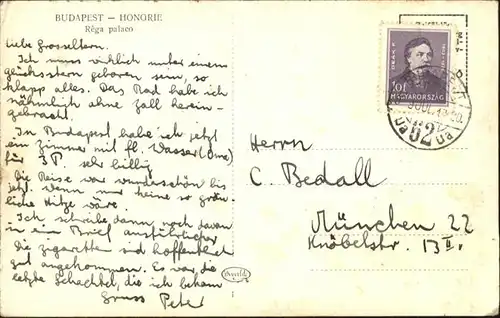 BUDAPEST — HONGRIE
Réga palaco
liebe Grosseltern.
Ich muss wirklich unter einem
glücksstern geboren sein, so
klapp alles. Das Rad habe ich
nähmlich ohne Zoll herein-
gebracht.
In Budapest habe ich jetzt
ein Zimmer mit fl. Wasser (Oma)
für 3 P. sehr billig
Die Reise war wunderschön bis
jetzt. wenn nur keine so gräu-
liche Hitze wäre.
Ich schreibe dann noch davon
in ein Brief ausführlicher
die Zigaretten sind hoffentlich
gut angekommen. Es war die
letzte Schachtel, die ich bekam
Gruss Peter
DEAK F.
10f
MAGYARORSZÁG
62
Herrn
C. Bedall
München 22
Knöbelstr. 13 II.